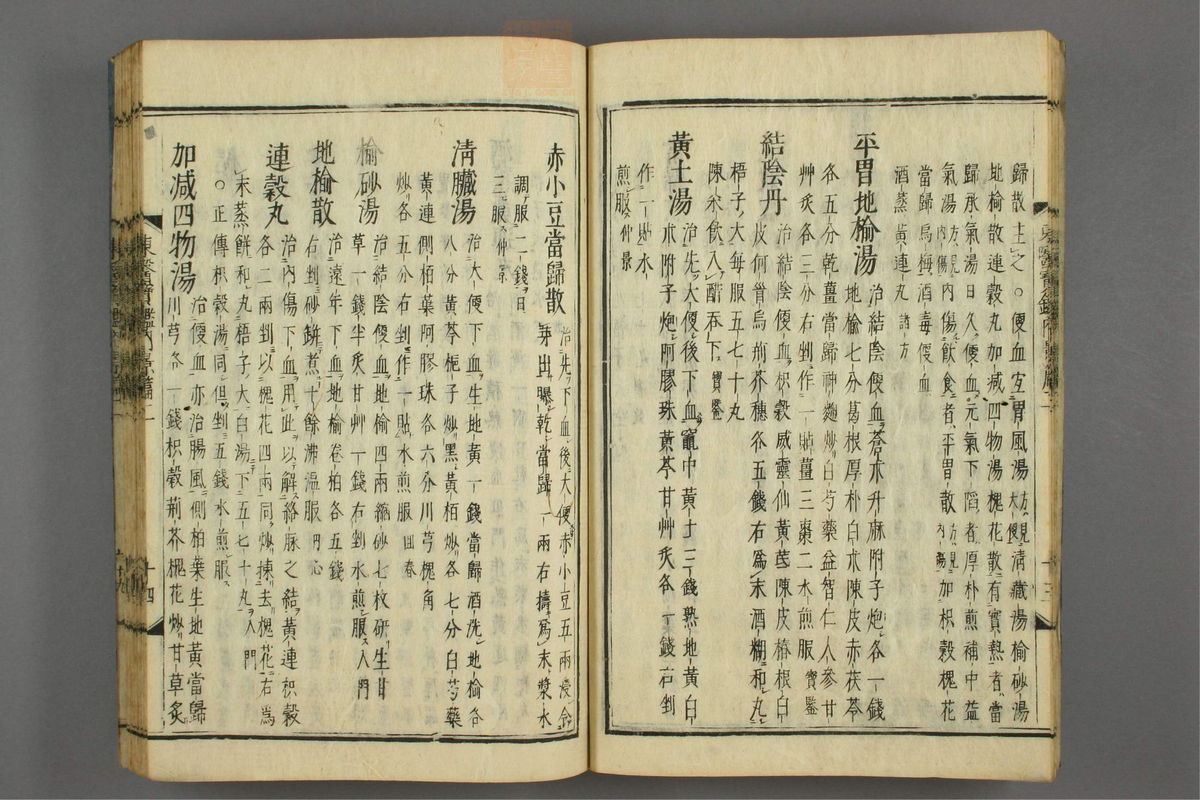 歸散主之○便血宜胃風湯方見大便清臟湯榆砂湯
地榆散連殼丸加減四物湯槐花散有實熱者當
歸承氣湯日久便血元氣下陷者厚朴煎補中益
氣湯方見內傷內傷飲食者平胃散方見內傷加枳殼槐花
當歸烏梅酒毒便血
酒蒸黃連丸諸方
平胃地榆湯治結陰便血蒼朮升麻附子炮各一錢
地榆七分葛根厚朴白朮陳皮赤茯苓
各五分乾薑當歸神麴炒白芍藥益智仁人參甘
艸炙各三分右剉作一貼薑三棗二水煎服寶鑒
結陰丹治結陰便血枳殼威靈仙黃芪陳皮椿根白
皮何首烏荊芥穗各五錢右爲末酒糊和丸
梧子大每服五七十丸
陳米飮入醋吞下寶鑒
黃土湯治先大便後下血竈中黃土三錢熟地黃白
朮附子炮阿膠珠黃芩甘艸炙各一錢右剉
作一貼水
煎服仲景
赤小豆當歸散治先下血後大便赤小豆五兩浸令
芽出曝乾當歸一兩右擣爲末漿水
調服二錢日
三服仲景
淸臟湯治大便下血生地黃一錢當歸酒洗地榆各
八分黃芩梔子炒黑黃栢炒各七分白芍藥
黃連側柏葉阿膠珠各六分川芎槐角
炒各五分右剉作一貼水煎服回春
榆砂湯治結陰便血地榆四兩縮砂七枚研生甘
草一錢半炙甘艸一錢右剉水煎服入門
地榆散治遠年下血地榆卷柏各五錢
右剉砂甁煮十餘沸溫服丹心
連殼丸治內傷下血用此以解絡脉之結黃連枳殼
各二兩剉以槐花四兩同炒揀去槐花右爲
末蒸餅和丸梧子大白湯下五七十丸入門
○正傳枳殼湯同但剉五錢水煎服
加減四物湯治便血亦治腸風側柏葉生地黃當歸
川芎各一錢枳殼荊芥槐花炒甘草炙